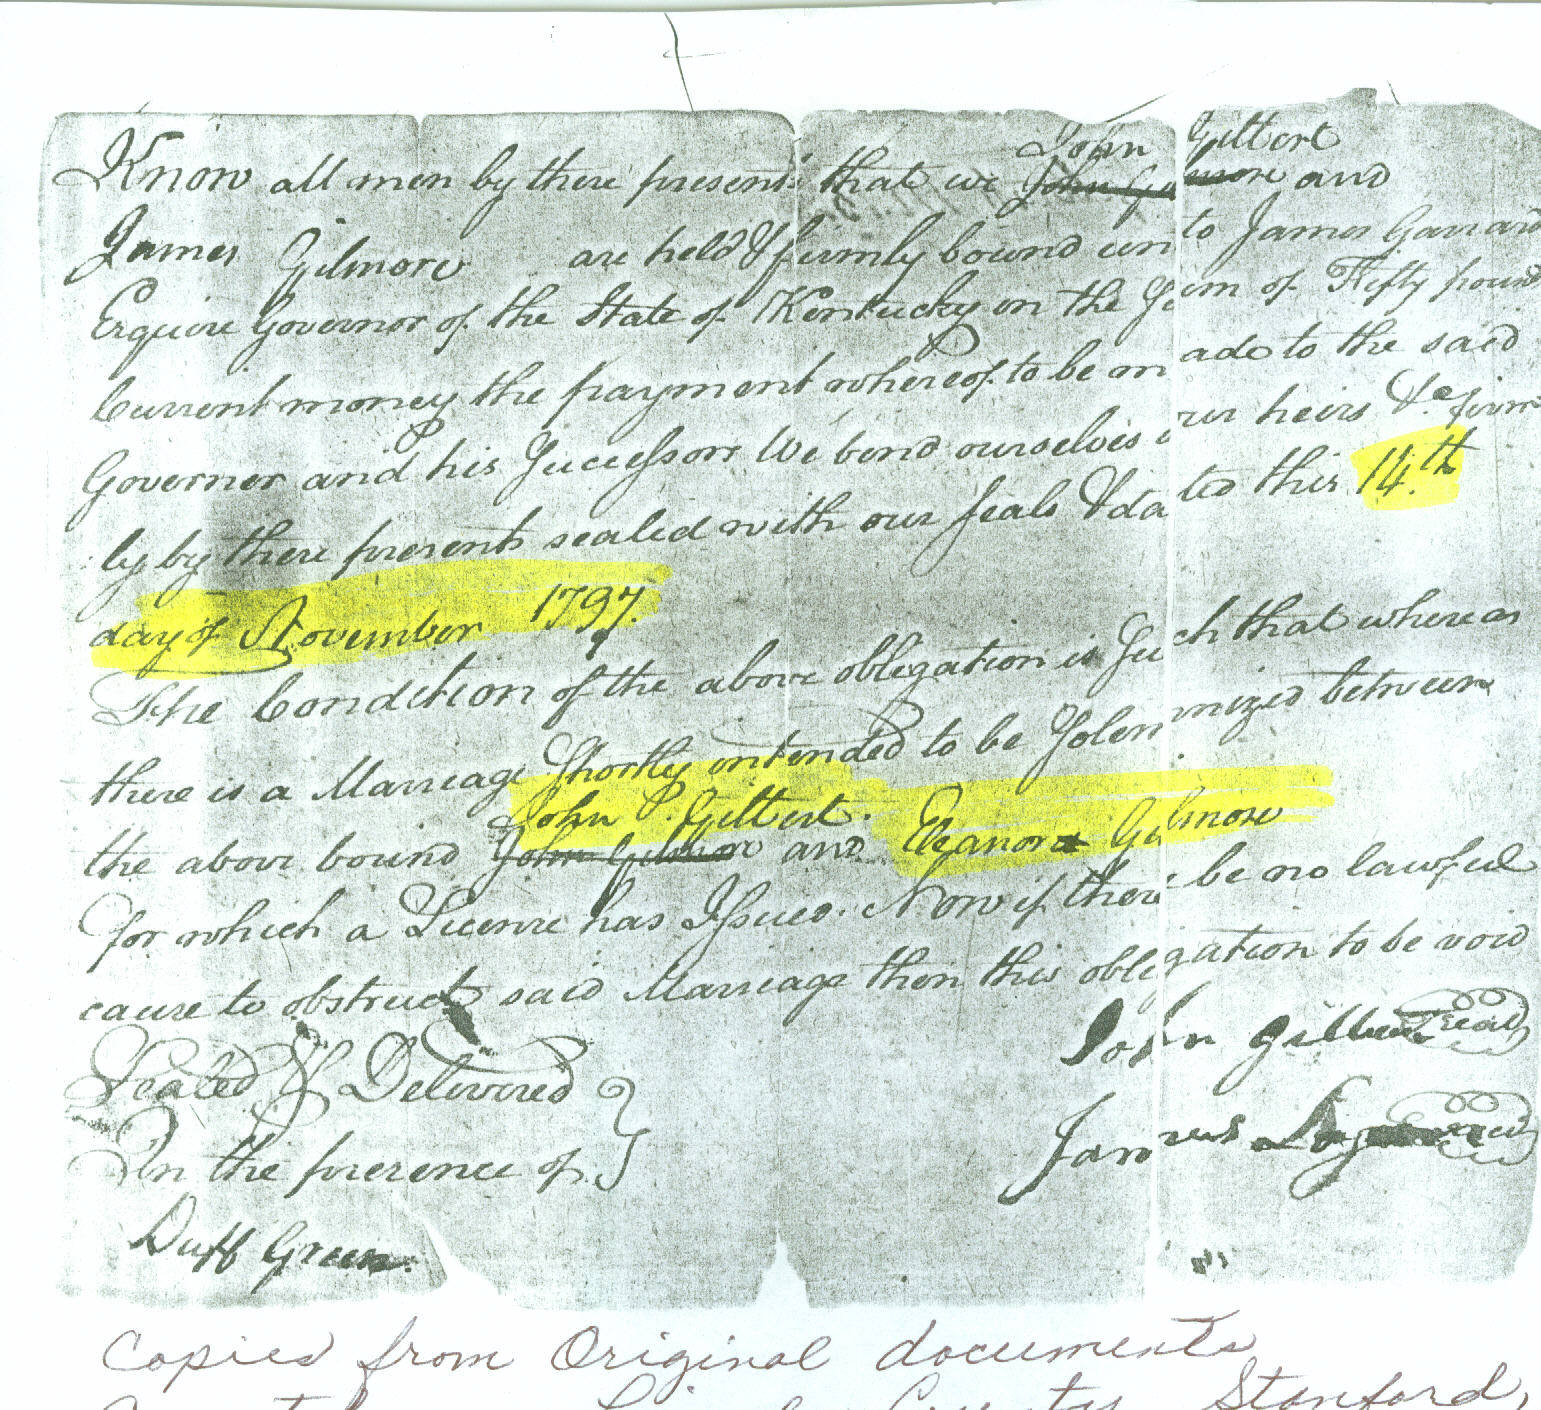 John Gilbert
Know all men by these presents that we John Gilmore and
James Gilmore are held & firmly bound unto James Garrard
Esquire Governor of the State of Kentucky on the Sum of Fifty pound
Current money the payment whereof to be made to the said
Governer and his Successors We bend ourselves our heirs &c firm
ly by these presents sealed with our seals & dated this 14.th
day of November 1797.
The Condition of the above obligation is Such that whereas
there is a Marriage Shortly intended to be Solemnized between
John Gilbert.
the above bound John Gilmore and Eleanor Gilmore
for which a License has Issued. Now if there be no lawful
cause to obstruct said Marriage then this obligation to be void
Sealed & Delivered John Gilbert Seal
In the presence of James
Duff Green.
Copied from Original documents
County Stanford,